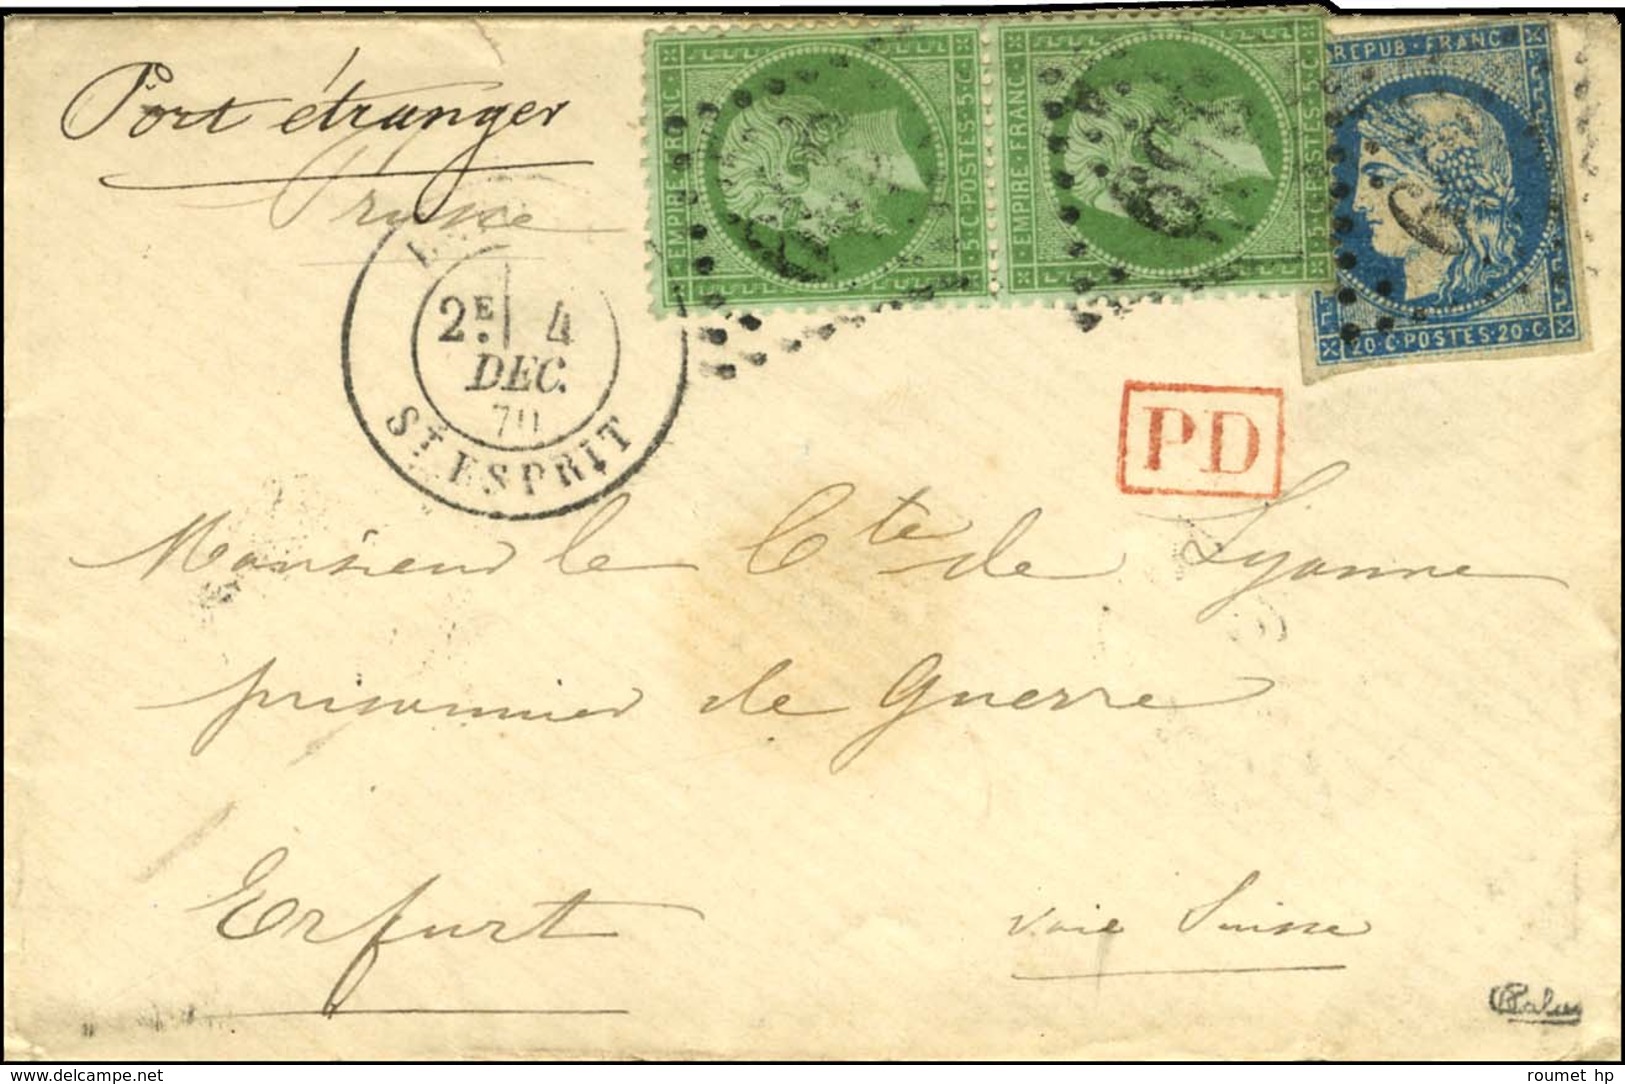 Port étranger
Prusse
EMPIRE·FRANC
5·C·POSTES·5·C
EMPIRE·FRANC
5·C·POSTES·5·C
REPUB·FRANC
20·C·POSTES·20·C
2E 4
DEC.
70
ST ESPRIT
PD
Monsieur le Cte de Lyonne
prisonnier de Guerre
Erfurt
voie Suisse
Calves
www.delcampe.net
roumet hp